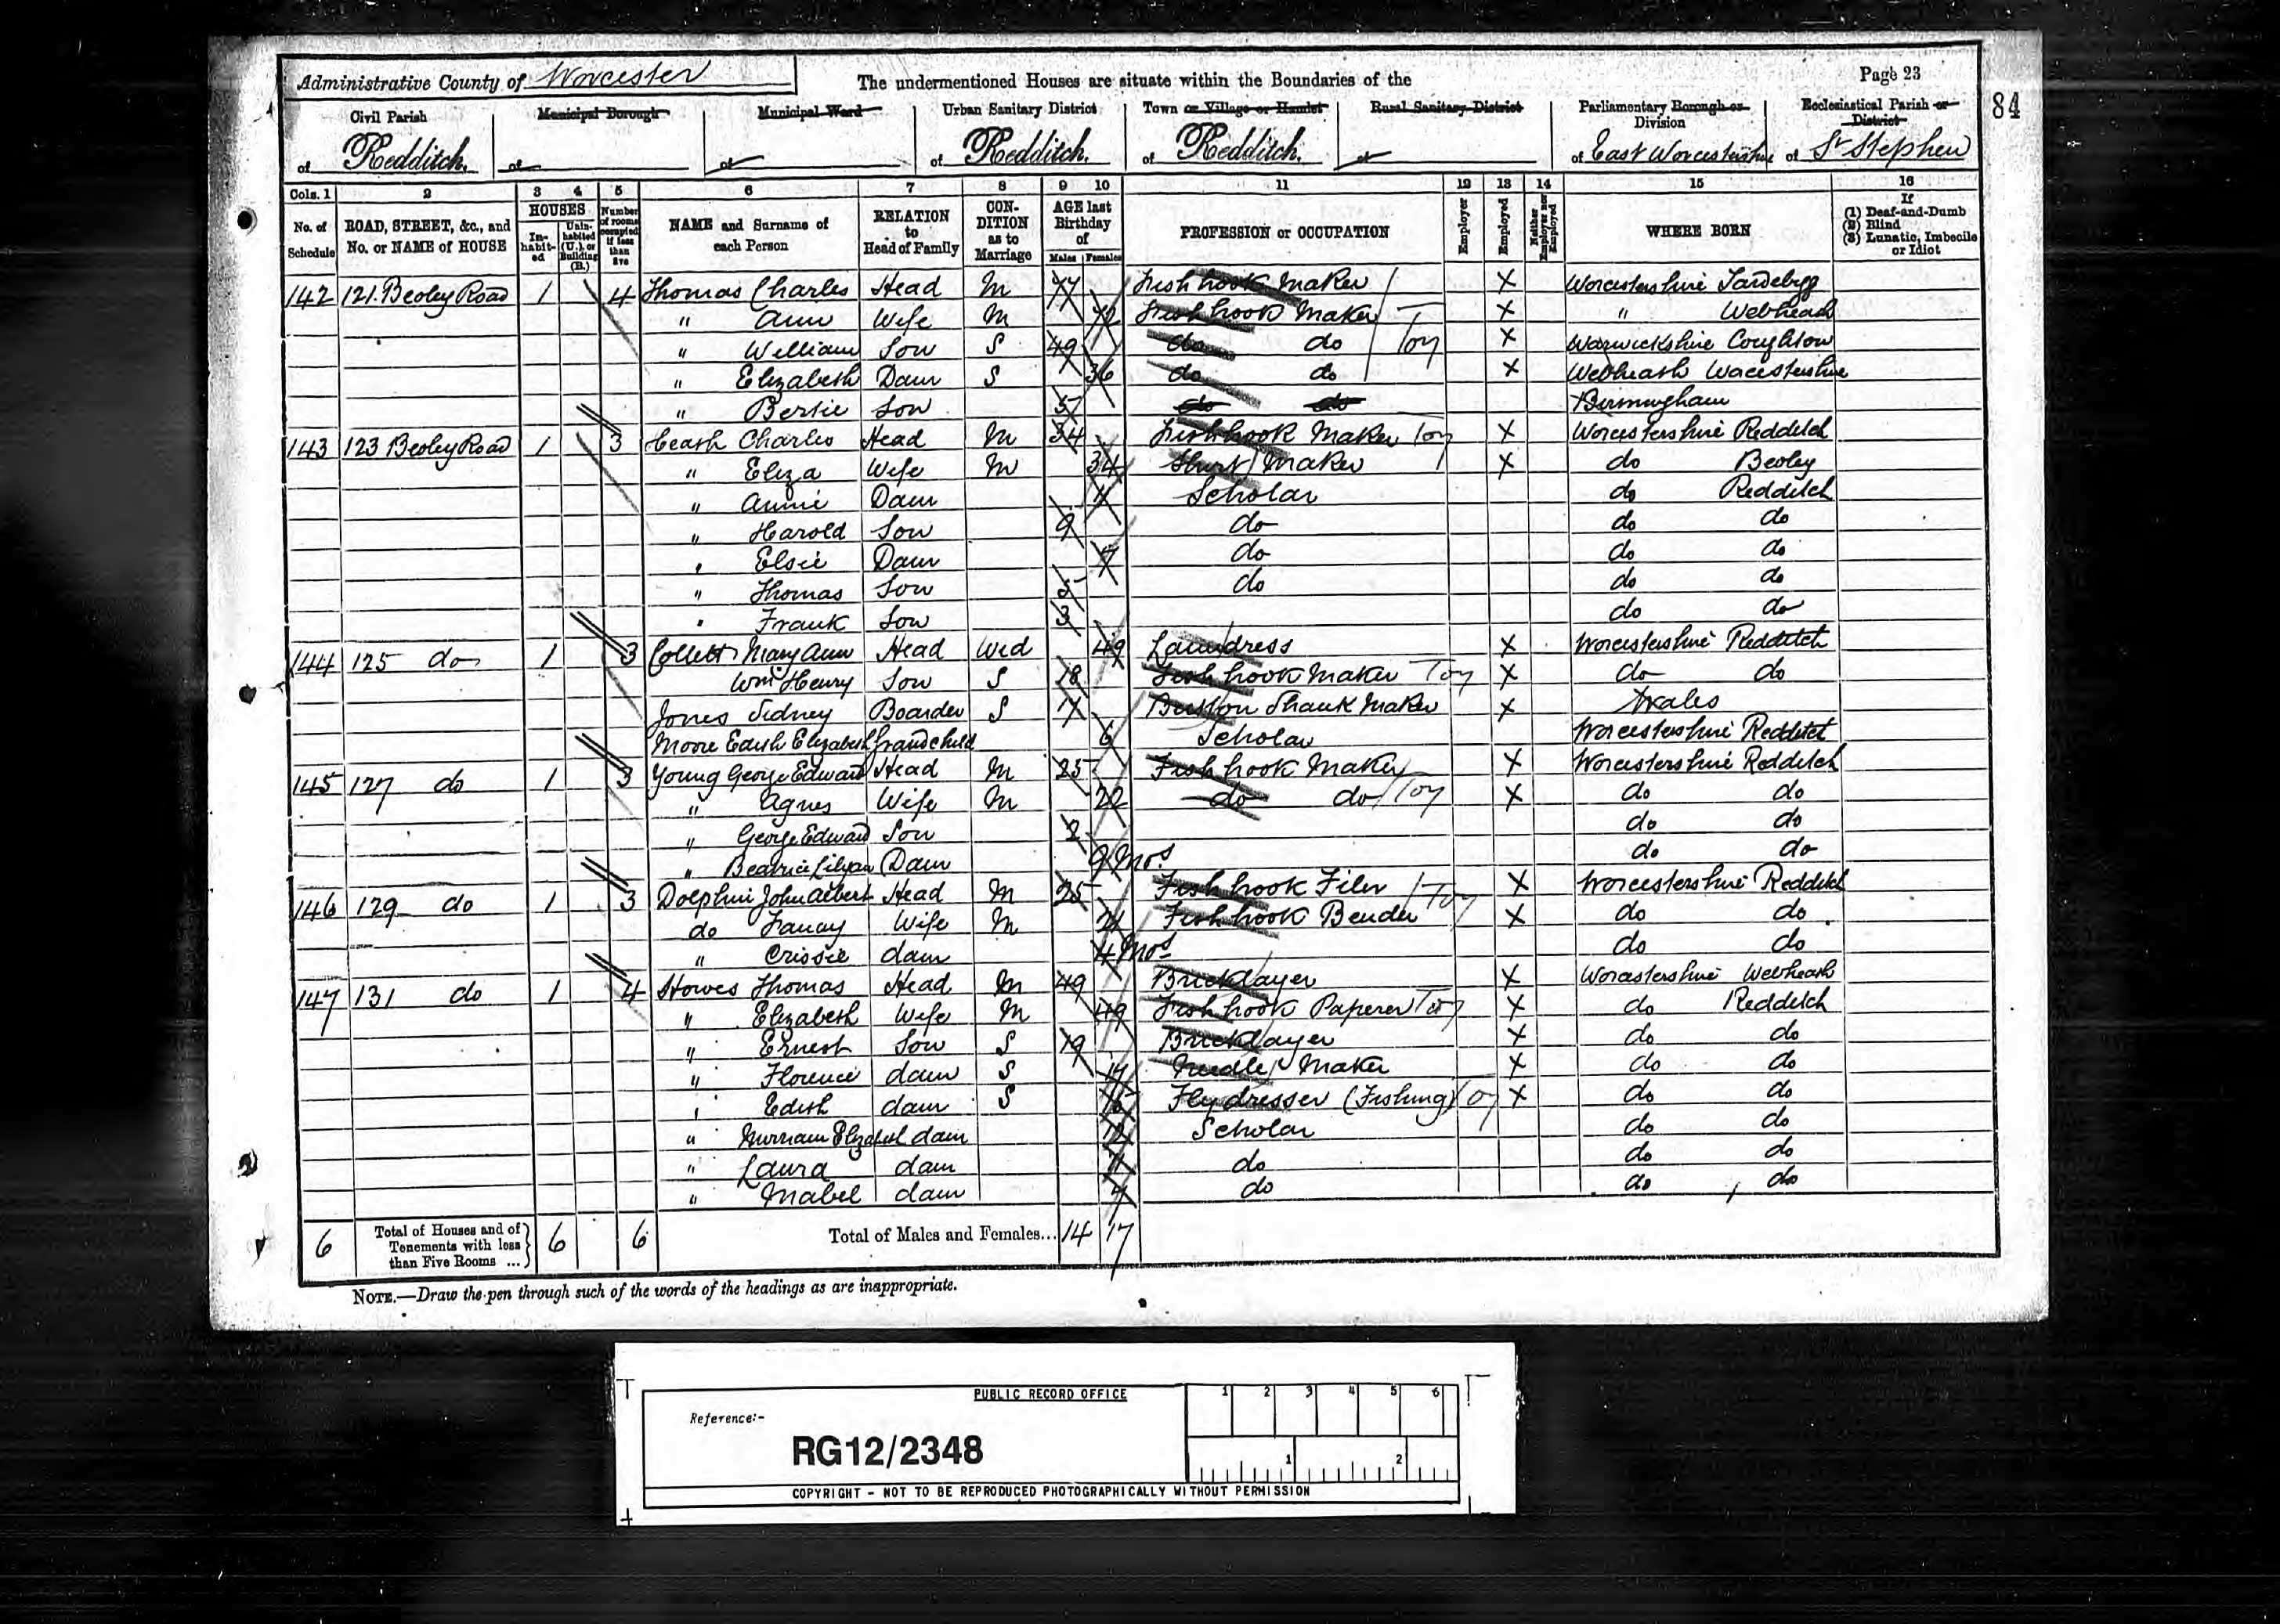 Administrative County of Worcester The undermentioned Houses are situate within the Boundaries of the Page 23
84
Civil Parish Municipal Borough Municipal Ward Urban Sanitary District Town or Village or Hamlet Rural Sanitary District Parliamentary Borough or Division Ecclesiastical Parish or District
of Redditch. of of of Redditch. of Redditch. of of East Worcestershire of St Stephen
Cols. 1 2 3 4 5 6 7 8 9 10 11 12 13 14 15 16
No. of Schedule ROAD, STREET, &c., and No. or NAME of HOUSE HOUSES In-habit-ed Unin-habited (U.), or Building (B.) Number of rooms occupied if less than five NAME and Surname of each Person RELATION to Head of Family CON-DITION as to Marriage AGE last Birthday of Males Females PROFESSION or OCCUPATION Employer Employed Neither Employer nor Employed WHERE BORN If (1) Deaf-and-Dumb (2) Blind (3) Lunatic, Imbecile or Idiot
142 121 Beoley Road 1 4 Thomas Charles Head M 77 Fish hook Maker X Worcestershire Tardebigg
" Ann Wife M 72 Fish hook Maker X " Webheath
" William Son S 49 do do Toy X Warwickshire Coughton
" Elizabeth Daur S 36 do do X Webheath Worcestershire
" Bertie Son 5 do do Birmingham
143 123 Beoley Road 1 3 Heath Charles Head M 34 Fish hook Maker Toy X Worcestershire Redditch
" Eliza Wife M 34 Shirt Maker X do Beoley
" Annie Daur 11 Scholar do Redditch
" Harold Son 9 do do do
" Elsie Daur 7 do do do
" Thomas Son 5 do do do
" Frank Son 3 do do
144 125 do 1 3 Collett Mary Ann Head Wid 49 Laundress X Worcestershire Redditch
Wm Henry Son S 18 Fish hook Maker Toy X do do
Jones Sidney Boarder S 17 Button Shank Maker X Wales
Moore Edith Elizabeth Grandchild 6 Scholar Worcestershire Redditch
145 127 do 1 3 Young George Edward Head M 25 Fish hook Maker X Worcestershire Redditch
" Agnes Wife M 22 do do Toy X do do
" George Edward Son 2 do do
" Beatrice Lilyan Daur 9 Mos do do
146 129 do 1 3 Dolphin John Albert Head M 25 Fish hook Filer Toy X Worcestershire Redditch
do Fanny Wife M 21 Fish hook Bender X do do
" Crissie daur 4 Mos do do
147 131 do 1 4 Howes Thomas Head M 49 Bricklayer X Worcestershire Webheath
" Elizabeth Wife M 49 Fish hook Paperer Toy X do Redditch
" Ernest Son S 19 Bricklayer X do do
" Florence daur S 17 Needle Maker X do do
" Edith daur S 15 Fly dresser (Fishing) Toy X do do
" Mirriam Elizabeth daur 12 Scholar do do
" Laura daur 11 do do do
" Mabel daur 7 do do do
6 Total of Houses and of Tenements with less than Five Rooms ... 6 6 Total of Males and Females... 14 17
NOTE.—Draw the pen through such of the words of the headings as are inappropriate.
PUBLIC RECORD OFFICE 1 2 3 4 5 6
Reference:-
RG12/2348 1 2
COPYRIGHT - NOT TO BE REPRODUCED PHOTOGRAPHICALLY WITHOUT PERMISSION